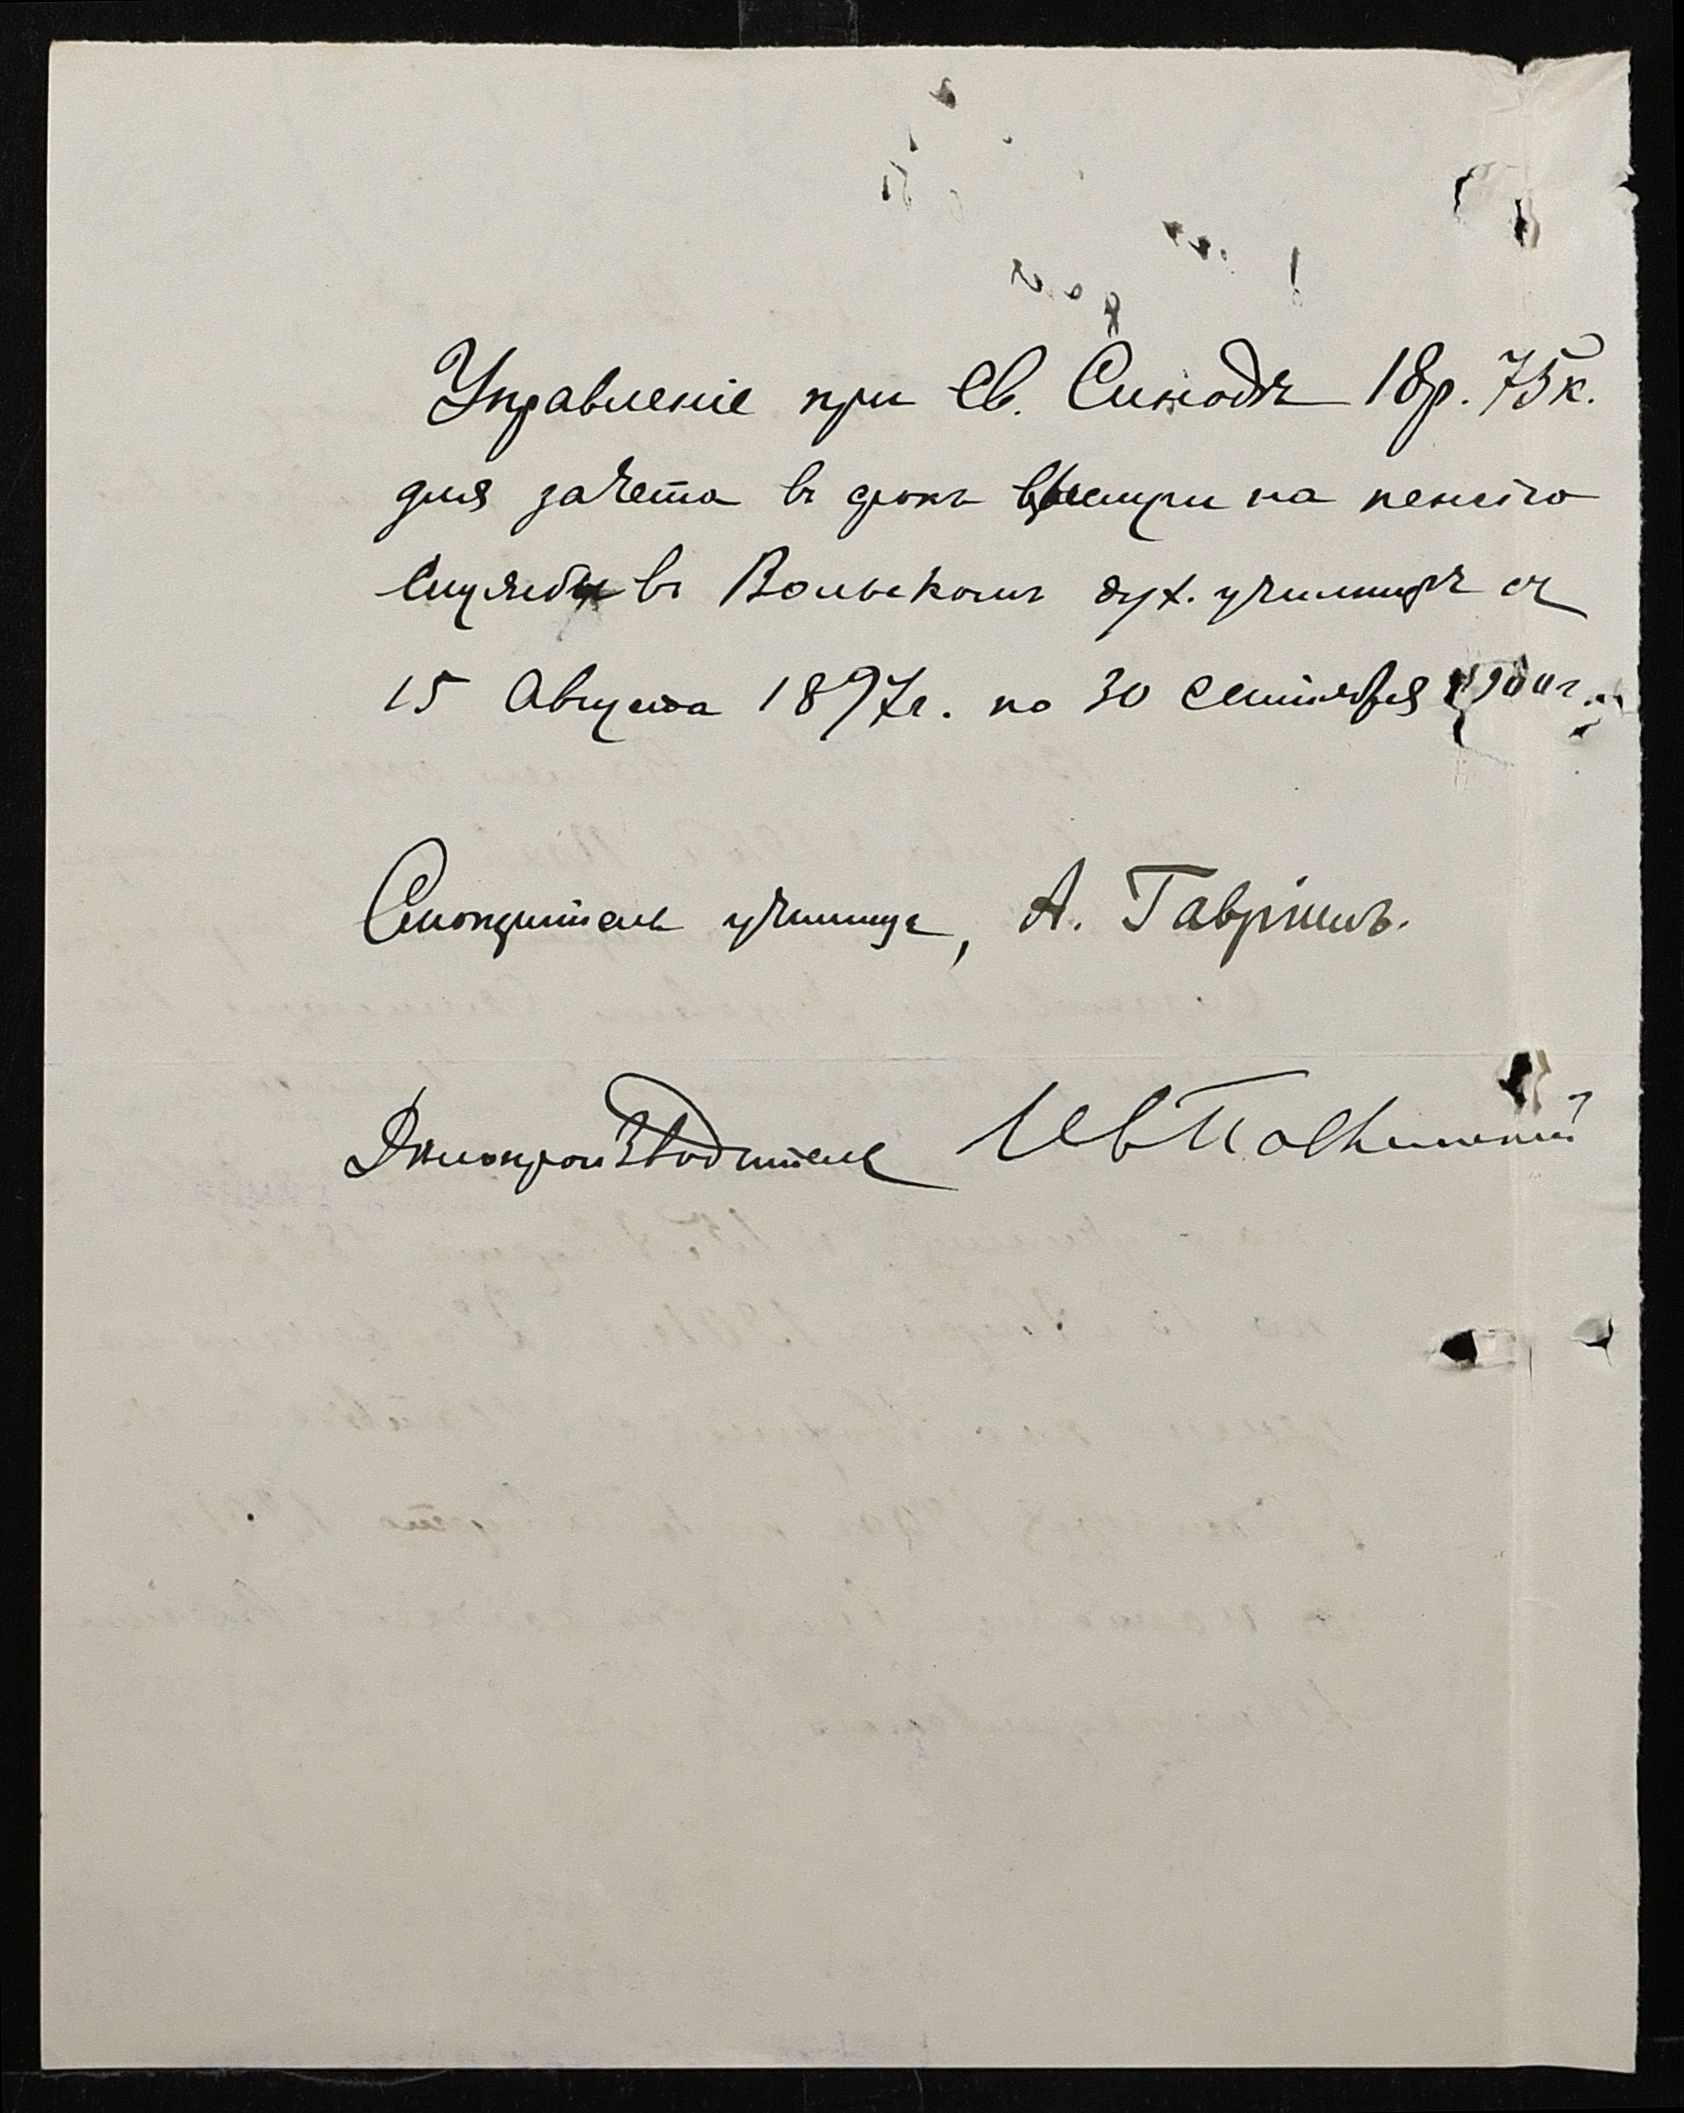 Управленіе при Св. Синодѣ 18р. 75к.
для зачета въ срокъ выслуги на пенсію
службы въ Вольскомъ дух. училищѣ съ
15 Августа 1897г. по 30 сентября 1900г.
Смотритель училища, А. Гавріилъ.
Дѣлопроизводитель Ив